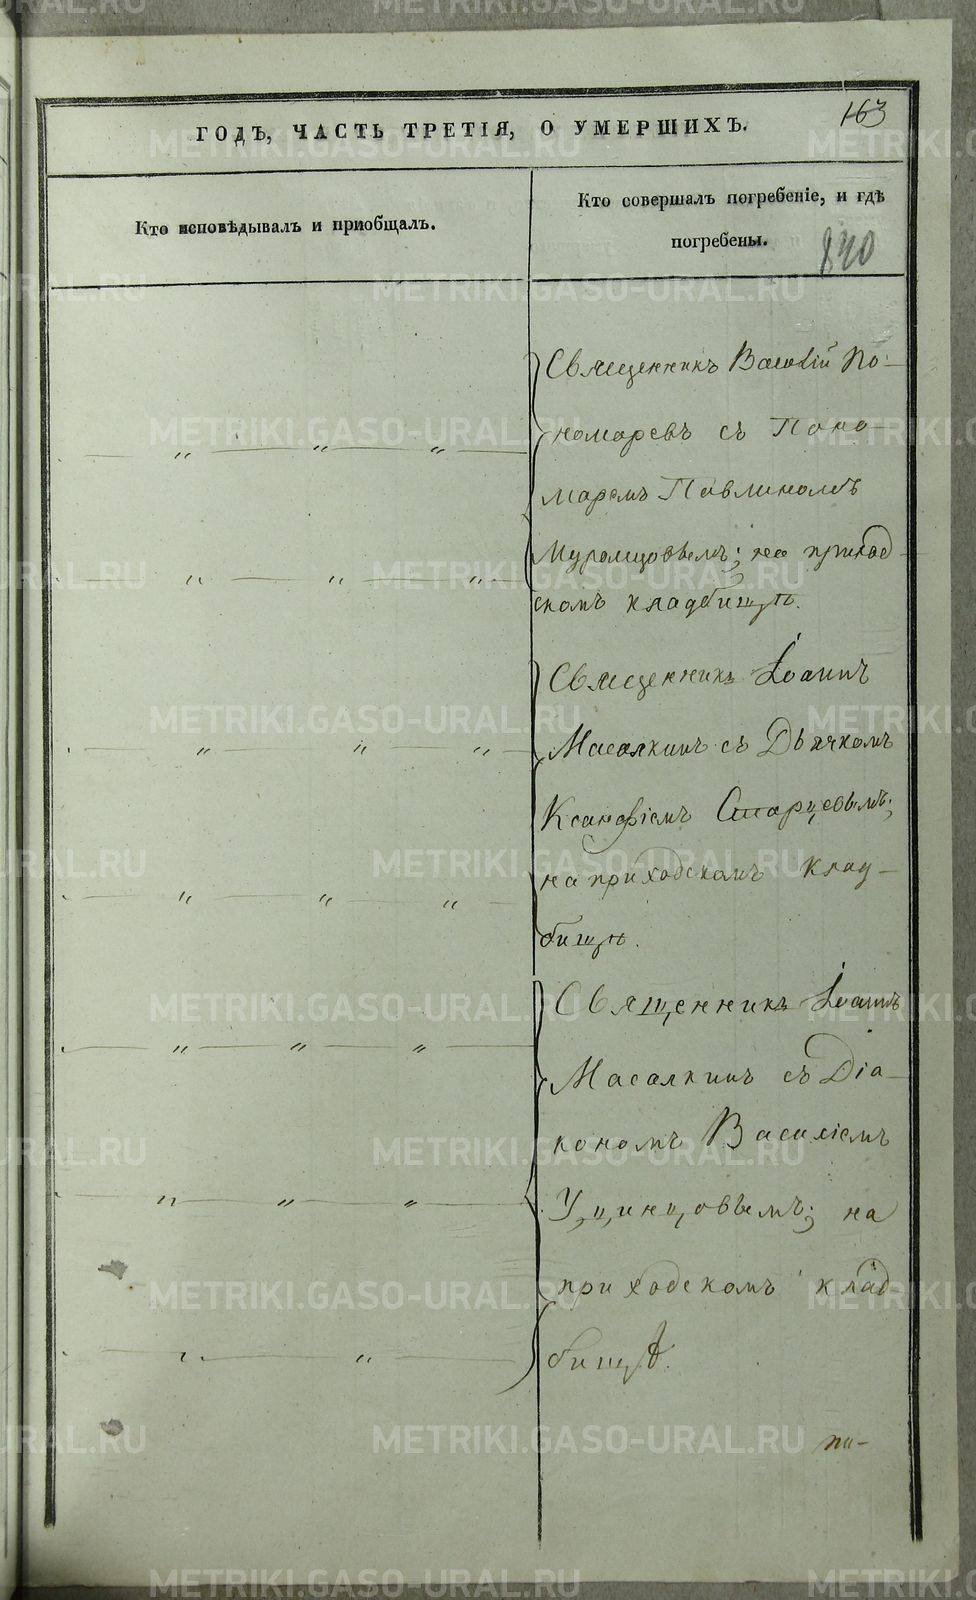 163
ГОДЪ, ЧАСТЬ ТРЕТІЯ, О УМЕРШИХЪ.
Кто исповѣдывалъ и пріобщалъ.
Кто совершалъ погребеніе, и гдѣ
погребены.
840
Священникъ Василій По-
номаревъ съ Поно-
маремъ Павлиномъ
Муромцовымъ; на приход-
скомъ кладбищѣ.
Священникъ Іоаннъ
Масалкинъ съ Дьячкомъ
Ксанфіемъ Старцевымъ;
на приходскомъ клад-
бищѣ.
Священникъ Іоаннъ
Масалкинъ съ Діа-
кономъ Василіемъ
на
приходскомъ клад-
бищѣ.
METRIKI.GASO-URAL.RU